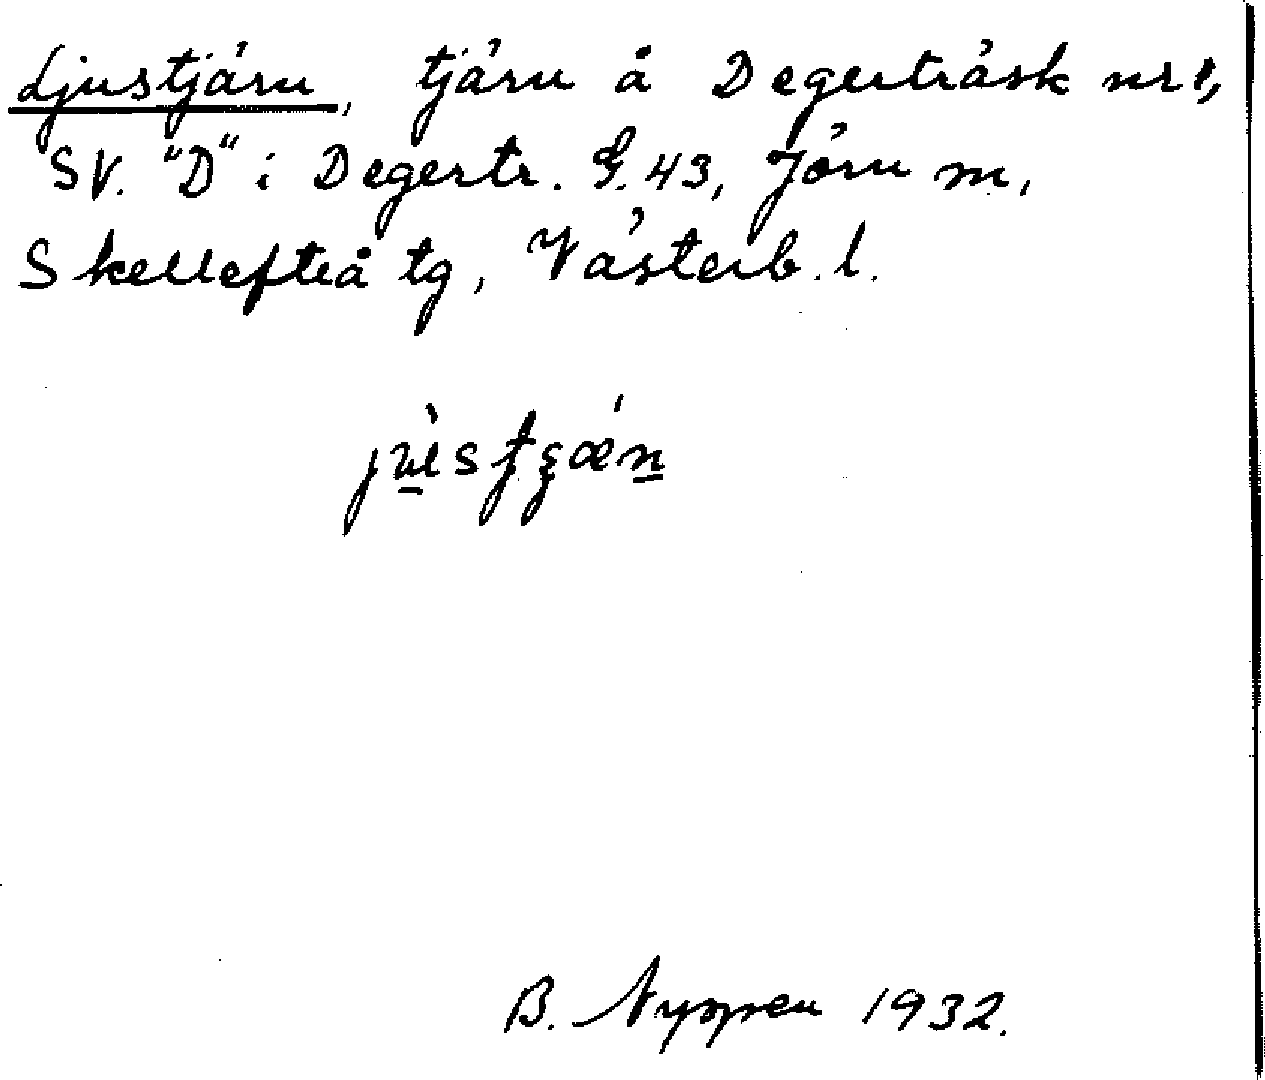 Ljustjärn, tjärn å Degerträsk nr 1,
SV. "D" i Degertr. G. 43, Jörn m,
Skellefteå tg, Västerb. l.
B. Nyppen 1932.